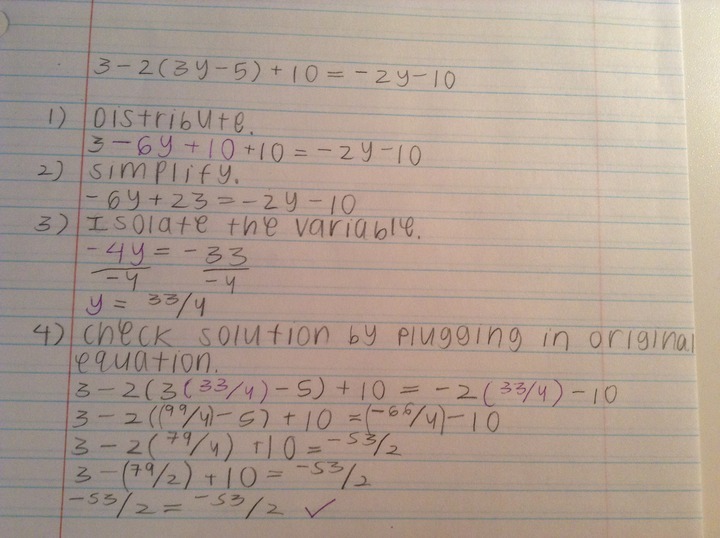 3-2(3y-5)+10=-2y-10
1) Distribute.
3-6y+10+10=-2y-10
2) Simplify.
-6y+23=-2y-10
3) Isolate the variable.
-4y = -33
-4 -4
y = 33/4
4) Check solution by plugging in original
equation.
3-2(3(33/4)-5)+10 = -2(33/4)-10
3-2((99/4)-5)+10=(-66/4)-10
3-2(79/4)+10=-53/2
3-(79/2)+10=-53/2
-53/2=-53/2 ✓